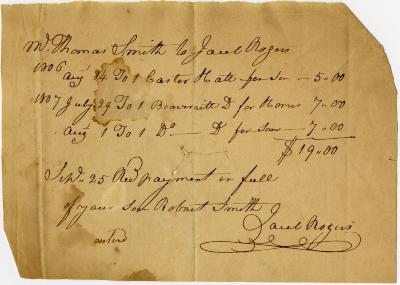 Mr. Thomas Smith to Jacob Rogers
1806
Aug 24 To 1 Castor Hatt for Son — 5.00
1807 July 29 To 1 Beaver Do for 7.00
Aug 1 To 1 Do — Do for Son — 7.00
$ 19.00
Sept. 25 Recd payment in full
of your Son Robart Smith
Jacob Rogers